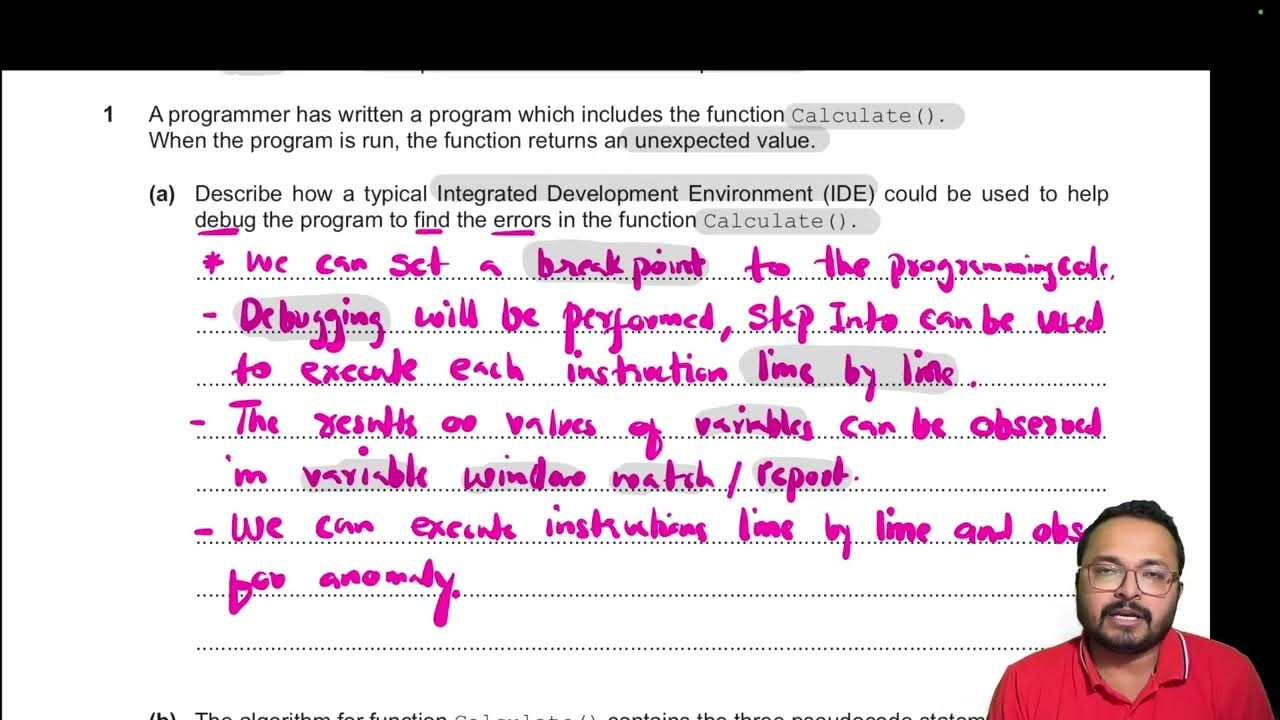 1 A programmer has written a program which includes the function Calculate().
When the program is run, the function returns an unexpected value.
(a) Describe how a typical Integrated Development Environment (IDE) could be used to help
debug the program to find the errors in the function Calculate().
* We can set a breakpoint to the programming code.
- Debugging will be performed, Step Into can be used
to execute each instruction line by line.
- The results or values of variables can be observed
in variable window watch / report.
- We can execute instructions line by line and obs
for anomaly.
(b) The algorithm for function Calculate() contains the three pseudocode statem